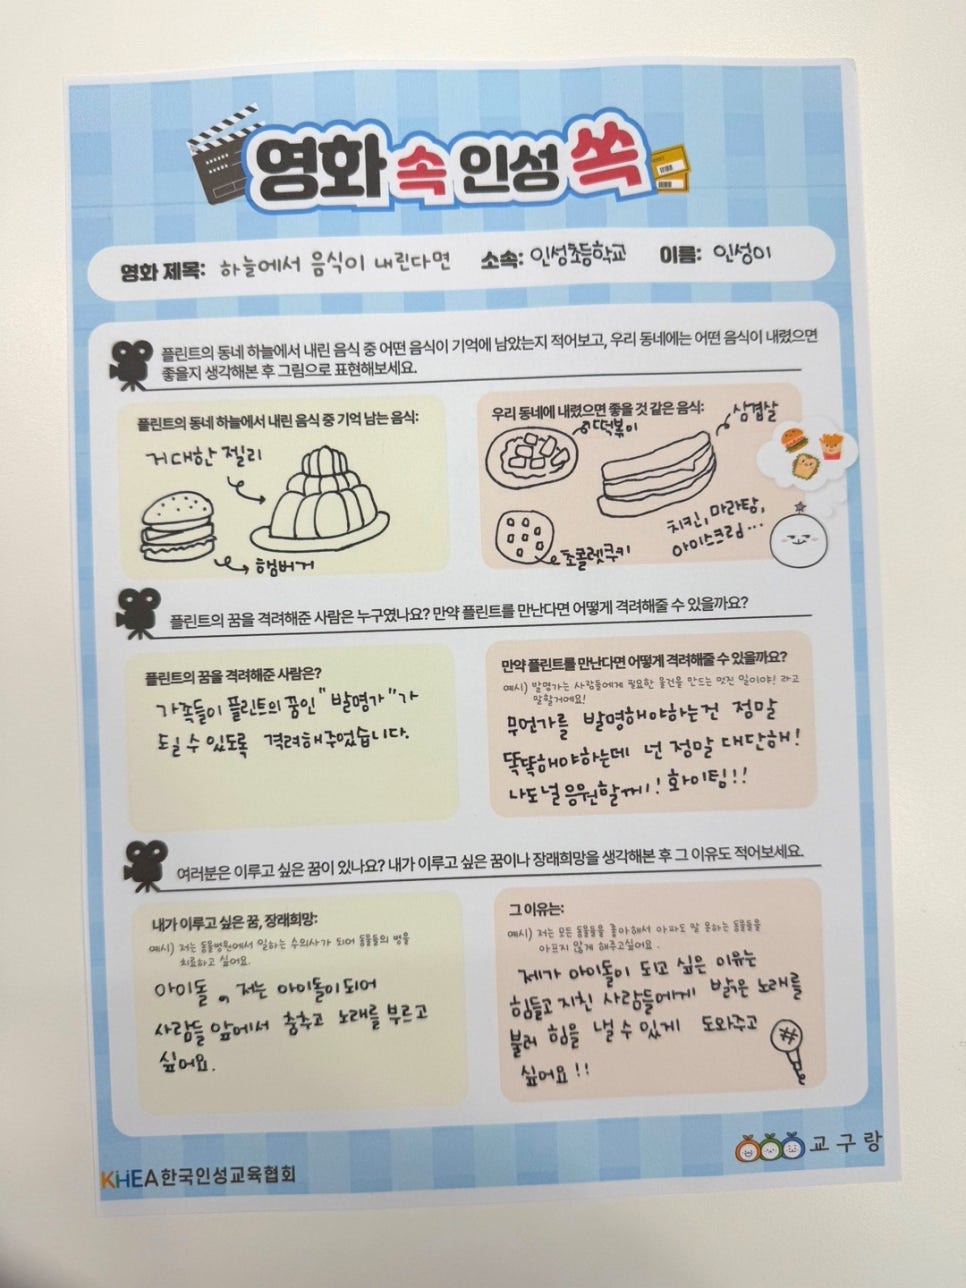 영화 속 인성 쏙
영화 제목: 하늘에서 음식이 내린다면 소속: 인성초등학교 이름: 인성이
플린트의 동네 하늘에서 내린 음식 중 어떤 음식이 기억에 남았는지 적어보고, 우리 동네에는 어떤 음식이 내렸으면
좋을지 생각해본 후 그림으로 표현해보세요.
플린트의 동네 하늘에서 내린 음식 중 기억 남는 음식:
거대한 젤리
햄버거
우리 동네에 내렸으면 좋을 것 같은 음식:
떡볶이
삼겹살
초콜렛쿠키
치킨, 마라탕,
아이스크림...
플린트의 꿈을 격려해준 사람은 누구였나요? 만약 플린트를 만난다면 어떻게 격려해줄 수 있을까요?
플린트의 꿈을 격려해준 사람은?
가족들이 플린트의 꿈인 "발명가"가
도일 수 있도록 격려해주었습니다.
만약 플린트를 만난다면 어떻게 격려해줄 수 있을까요?
예시) 발명가는 사람들에게 필요한 물건을 만드는 멋진 일이야! 라고
말할거에요!
무언가를 발명해야하는건 정말
똑똑해야하는데 넌 정말 대단해!
나도 널 응원할께! 화이팅!!
여러분은 이루고 싶은 꿈이 있나요? 내가 이루고 싶은 꿈이나 장래희망을 생각해본 후 그 이유도 적어보세요.
내가 이루고 싶은 꿈, 장래희망:
예시) 저는 동물병원에서 일하는 수의사가 되어 동물들의 병을
치료하고 싶어요.
아이돌, 저는 아이돌이 되어
사람들 앞에서 춤추고 노래를 부르고
싶어요.
그 이유는:
예시) 저는 모든 동물들을 좋아해서 아파도 말 못하는 동물들을
아프지 않게 해주고싶어요.
제가 아이돌이 되고 싶은 이유는
힘들고 지친 사람들에게 밝은 노래를
불러 힘을 낼 수 있게 도와주고
싶어요!!
KHEA 한국인성교육협회
교구랑